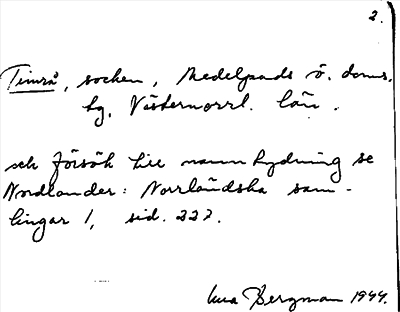 2.
Timrå, socken, Medelpads ö. doms.
hg, Västernorrl. län.
och försök till namntydning se
Nordlander: Norrländska sam-
lingar 1, sid. 227.
Bergman 1944.